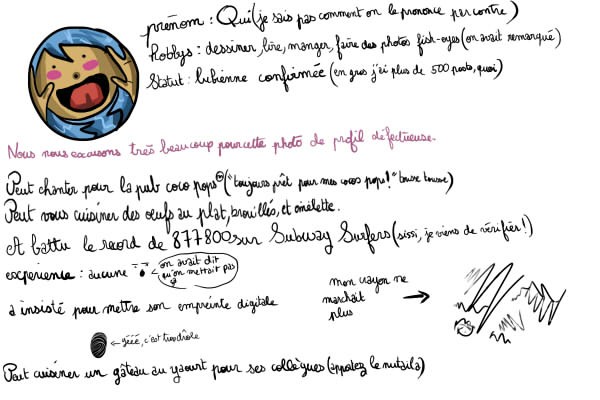 prénom : Qui (je sais pas comment on le prononce par contre)
hobbys : dessiner, lire, manger, faire des photos fish-eyes (on avait remarqué)
Statut : bibienne confirmée (en gros j'ai plus de 500 posts, quoi)
Nous nous excusons très beaucoup pour cette photo de profil défectueuse.
Peut chanter pour la pub coco pops ("toujours prêt pour mes cocos pops!" tousse tousse)
Peut vous cuisiner des oeufs au plat, brouillés, et omelette.
A battu le record de 877800 sur Subway Surfers (sissi, je viens de vérifier!)
expérience : aucune
on avait dit
qu'on mettait pas
ça
a insisté pour mettre son empreinte digitale
mon crayon ne
marchait
plus
gééé, c'est trop drôle
Peut cuisiner un gâteau au yaourt pour ses collègues (appelez le nutaila)